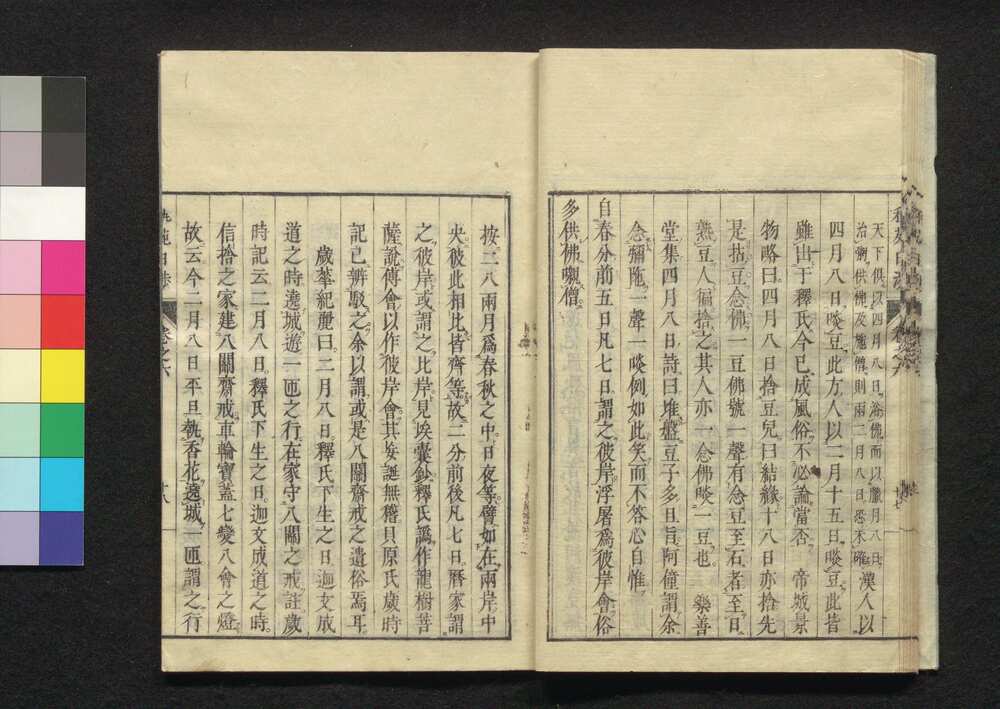 天下倶以四月八日浴佛而以臘月八日
治粥供佛及施僧則兩二月八日恐未確
漢人以
四月八日啖豆此方人以二月十五日啖豆此皆
雖出于釋氏今已成風俗不必論當否 帝城景
物略曰四月八日捨豆兒曰結緣十八日亦捨先
是拈豆念佛一豆佛號一聲有念豆至石者至日
熟豆人徧捨之其人亦一念佛啖一豆也 樂善
堂集四月八日詩曰堆盤豆子多且旨阿僮謂余
念彌陁一聲一啖例如此笑而不答心自惟
自春分前五日凡七日謂之彼岸浮屠爲彼岸會俗
多供佛嚫僧
按二八兩月爲春秋之中日夜等譬如在兩岸中
央彼此相比皆齊等故二分前後凡七日曆家謂
之彼岸或謂之比岸見埃囊鈔釋氏譌作龍樹菩
薩說傳會以作彼岸會其妄誕無稽貝原氏歲時
記已辨駁之余以謂或是八關齋戒之遺俗焉耳
歲華紀麗曰二月八日釋氏下生之日迦文成
道之時遶城遊一匝之行在家守八關之戒註歲
時記云二月八日釋氏下生之日迦文成道之時
信捨之家建八關齋戒車輪寶蓋七變八會之燈
故云今二月八日平旦執香花遶城一匝謂之行
卷之六
十八